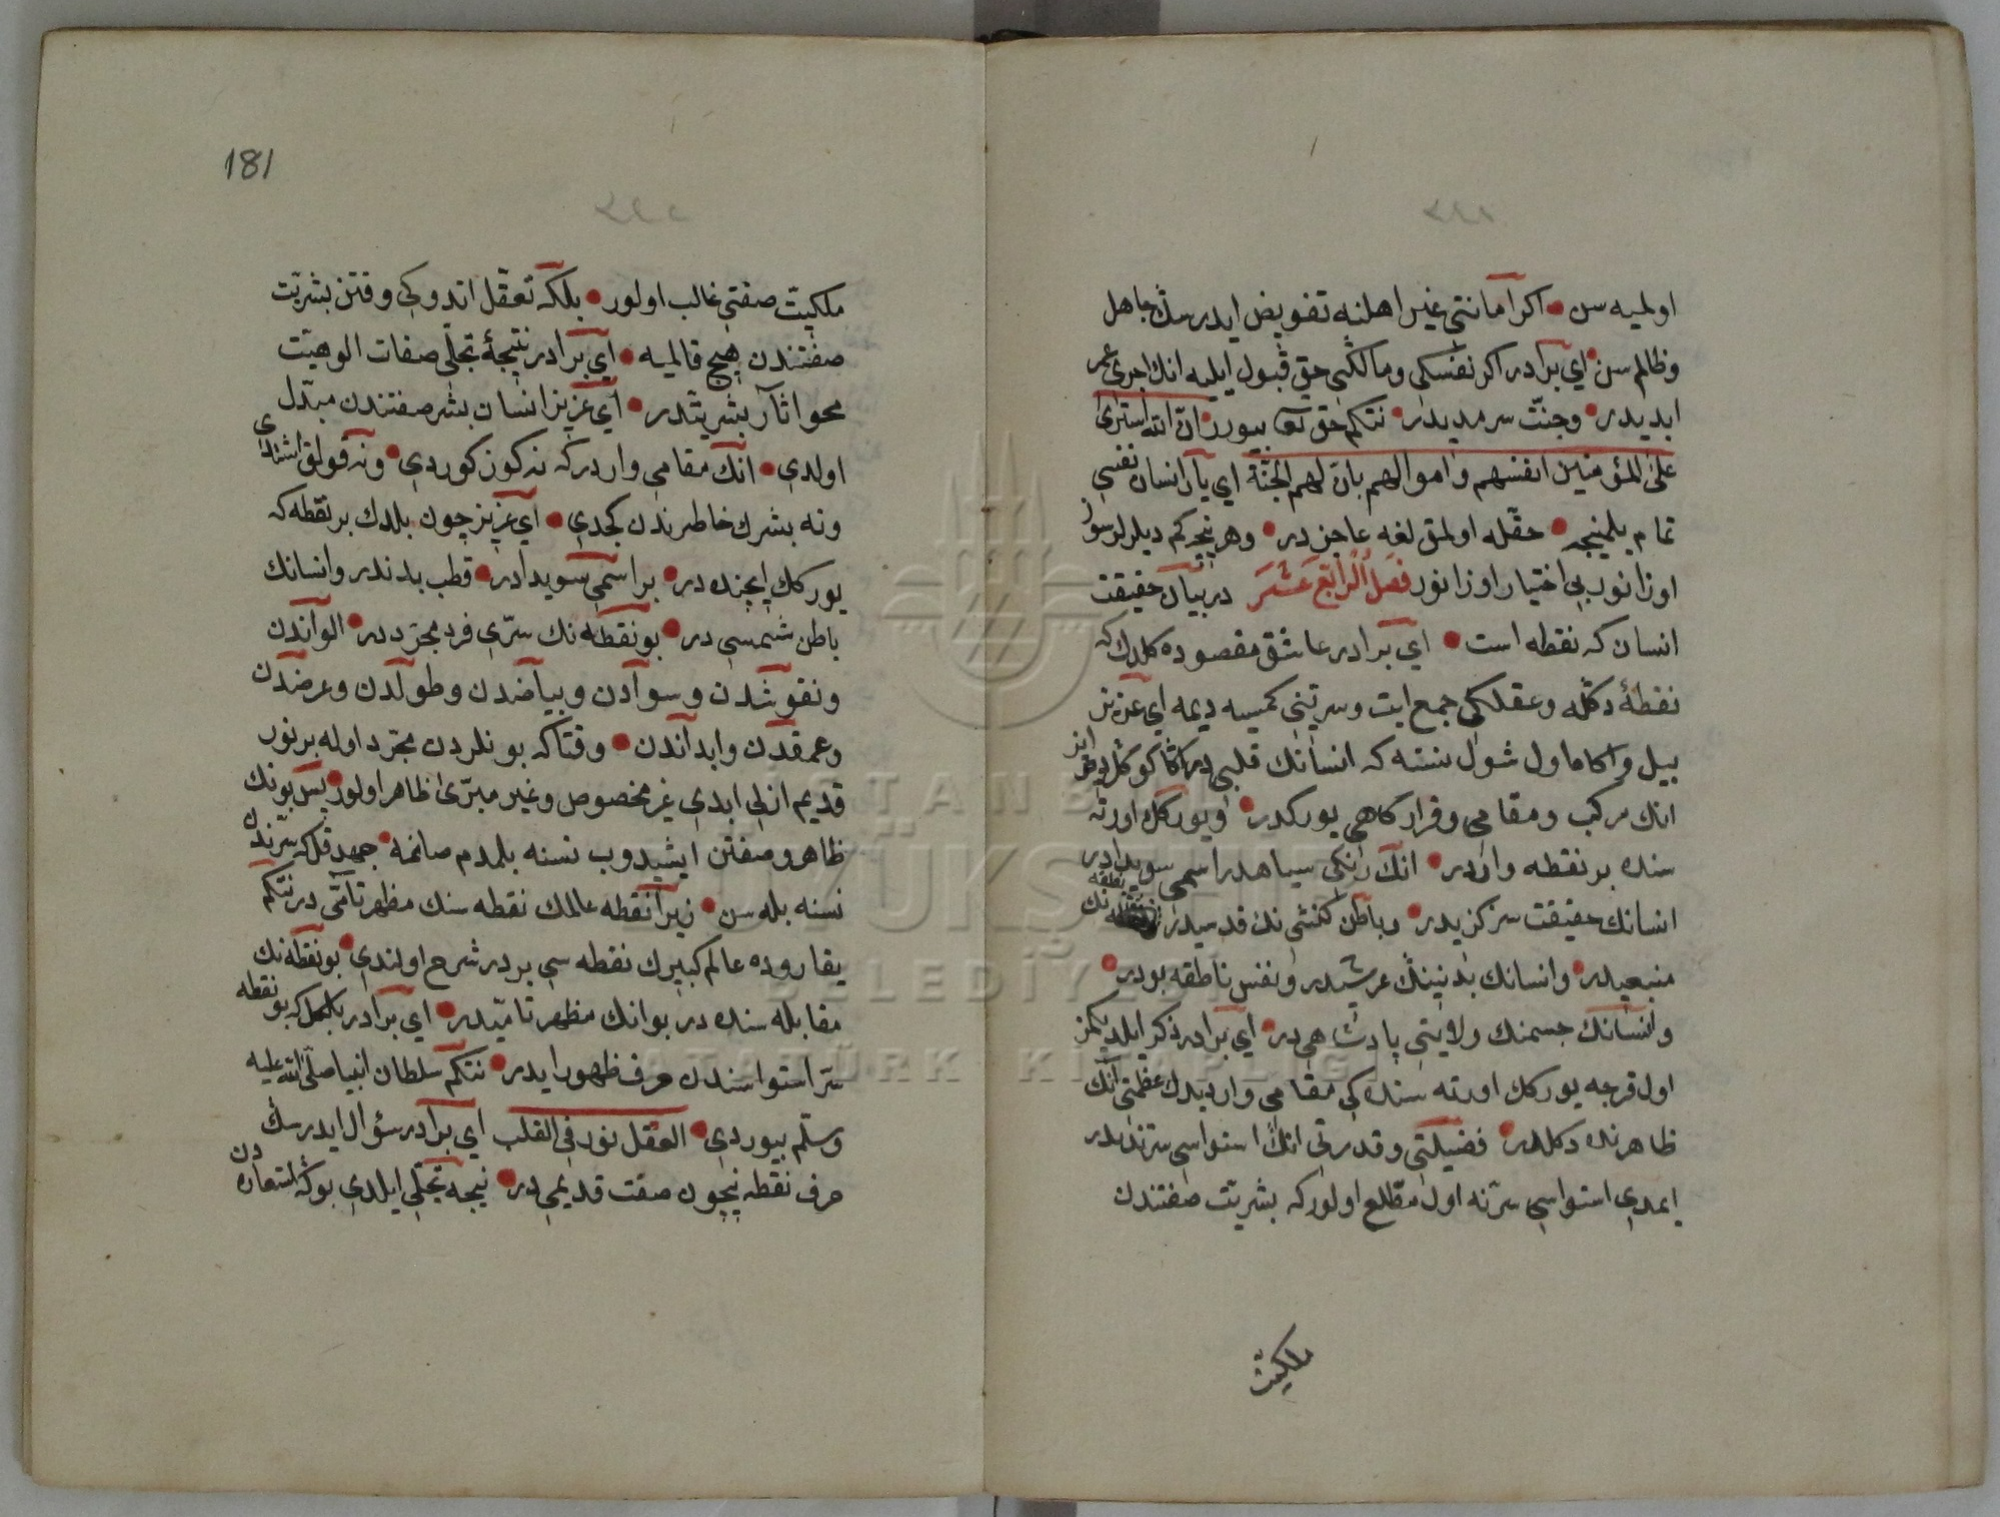 اولميه سن • اكر امانتى غير اهلنه تفويض ايدرسڭ جاهل
وظالم سن • اى برادر اكر نفسكى ومالكنى حق قبول ايليه انك اجرى
ابديدر • وجنّت سرمديدر • نتكم حق تعا بيورر ان الله اشترى
على المؤمنين انفسهم واموالهم بان لهم الجنّة اي يار انسان نفسى
تمام بلمنيجه • حقّله اولمق لغه عاجزدر • وهر نيجه كم ديلرلر سوز
اوزانور بى اختيار اوزانور فصل الرابع عشر در بيان حقيقت
انسان كه نقطه است • اي برادر عاشق مقصوده كلدك كه
نقطهٔ دكله وعقلكى جمع ايت وسرّينى كمسيه ديمه اي عزيز
بيل واكاه اول شول نسنه كه انسانك قلبى در اكا كوكل ديرلر
انك مركب ومقامى وقراركاهى يوركدر • ويورككك اورته
سنده بر نقطه واردر • انك رنكى سياهدر اسمى سويدادر
انسانك حقيقت مركزيدر • وباطن كنشى نك قدسيدر نقطه نك
منبعيدر • وانسانك بدنينڭ عرشيدر ونفس ناطقه بودر •
وانسانك جسمنك ولايتى پادشاهى در • اي برادر ذكر ايلديكمز
اول قرجه يوركك اورته سنده كى مقامى وارديدك عظمتى آنك
ظاهرنده دكلدر • فضيلتى وقدرتى انك استواسى سرّنده در
ايمدى استواسى سرّنه اول مطّلع اولور كه بشريّت صفتندن
ملكيّت
181
ملكيّت صفتى غالب اولور • بلكه تعقّل اتدوكى وقتن بشريّت
صفتندن هيچ قالميه • اي برادر نتيجهٔ تجلّى صفات الوهيّت
محو اثار بشريتدر • اي عزيز انسان بشر صفتندن مبدّل
اولدى • انك مقامى واردر كه نه كوز كوردى • ونه قولق اشتدى
ونه بشرك خاطرندن كچدى • اي عزيز چون بلدك بر نقطه كه
يوركك ايچنده در • بر اسمى سويدادر • قطب بدندر وانسانك
باطن شمسى در • بو نقطه نك سرّى فرد مجرّددر • الواندن
ونقوشدن وسوادن وبياضدن وطولدن وعرضدن
وعمقدن وابداندن • وقتا كه بونلردن مجرّد اوله بر نور
قديم ازلى ابدى غير مخصوص وغير مبرّى ظاهر اولور • پس بونك
ظاهر وصفتن ايشيدوب نسنه بلمدم صانمه • جهد قل كه سرّندن
نسنه بله سن • زيرا نقطه عالمك نقطه سنك مظهر تامّى در نتكم
يقاروده عالم كبيرك نقطه سى بردر شرح اولندى • بو نقطه نك
مقابله سنده در بو انك مظهر تاميّدر • اي برادر بلكل كه بو نقطه
سرّ استواسندن حرف ظهور ايدر • نتكم سلطان انبيا صلى الله عليه
وسلّم بيوردى • العقل نور فى القلب اي برادر سؤال ايدرسڭ
حرف نقطه نيچون صفت قديمى در • نيجه تجلّى ايلدى بوكه استعاره دن